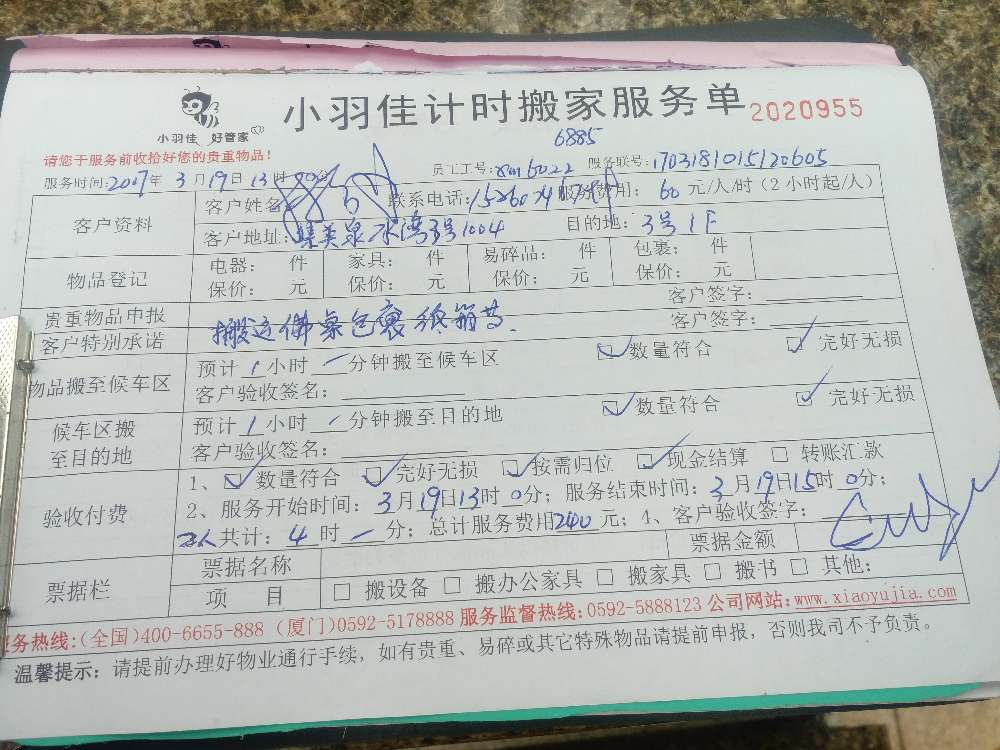 小羽佳 好管家
小羽佳计时搬家服务单 2020955
请您于服务前收拾好您的贵重物品！
6885
员工工号: xm6022 服务联号: 1703181015120605
服务时间: 2017年 3月19日13时
客户资料
客户姓名: 联系电话: 服务费用: 60 元/人/时（2小时起/人）
客户地址: 3号1004 目的地: 3号1F
物品登记
电器: 件 家具: 件 易碎品: 件 包裹: 件
保价: 元 保价: 元 保价: 元 保价: 元
贵重物品申报 客户签字:
客户特别承诺 搬运佛桌包裹纸箱等. 客户签字:
物品搬至候车区
预计1小时一分钟搬至候车区 ☑数量符合 ☑完好无损
客户验收签名:
候车区搬至目的地
预计1小时一分钟搬至目的地 ☑数量符合 ☑完好无损
客户验收签名:
验收付费
1、☑数量符合 ☑完好无损 ☑按需归位 ☑现金结算 □转账汇款
2、服务开始时间: 3月19日13时0分; 服务结束时间: 3月19日15时0分;
2人共计: 4时一分; 总计服务费用240元; 4、客户验收签字:
票据栏
票据名称 票据金额
项 目 □搬设备 □搬办公家具 □搬家具 □搬书 □其他:
务热线:(全国)400-6655-888 (厦门)0592-5178888 服务监督热线:0592-5888123 公司网站:www.xiaoyujia.com
温馨提示: 请提前办理好物业通行手续，如有贵重、易碎或其它特殊物品请提前申报，否则我司不予负责。